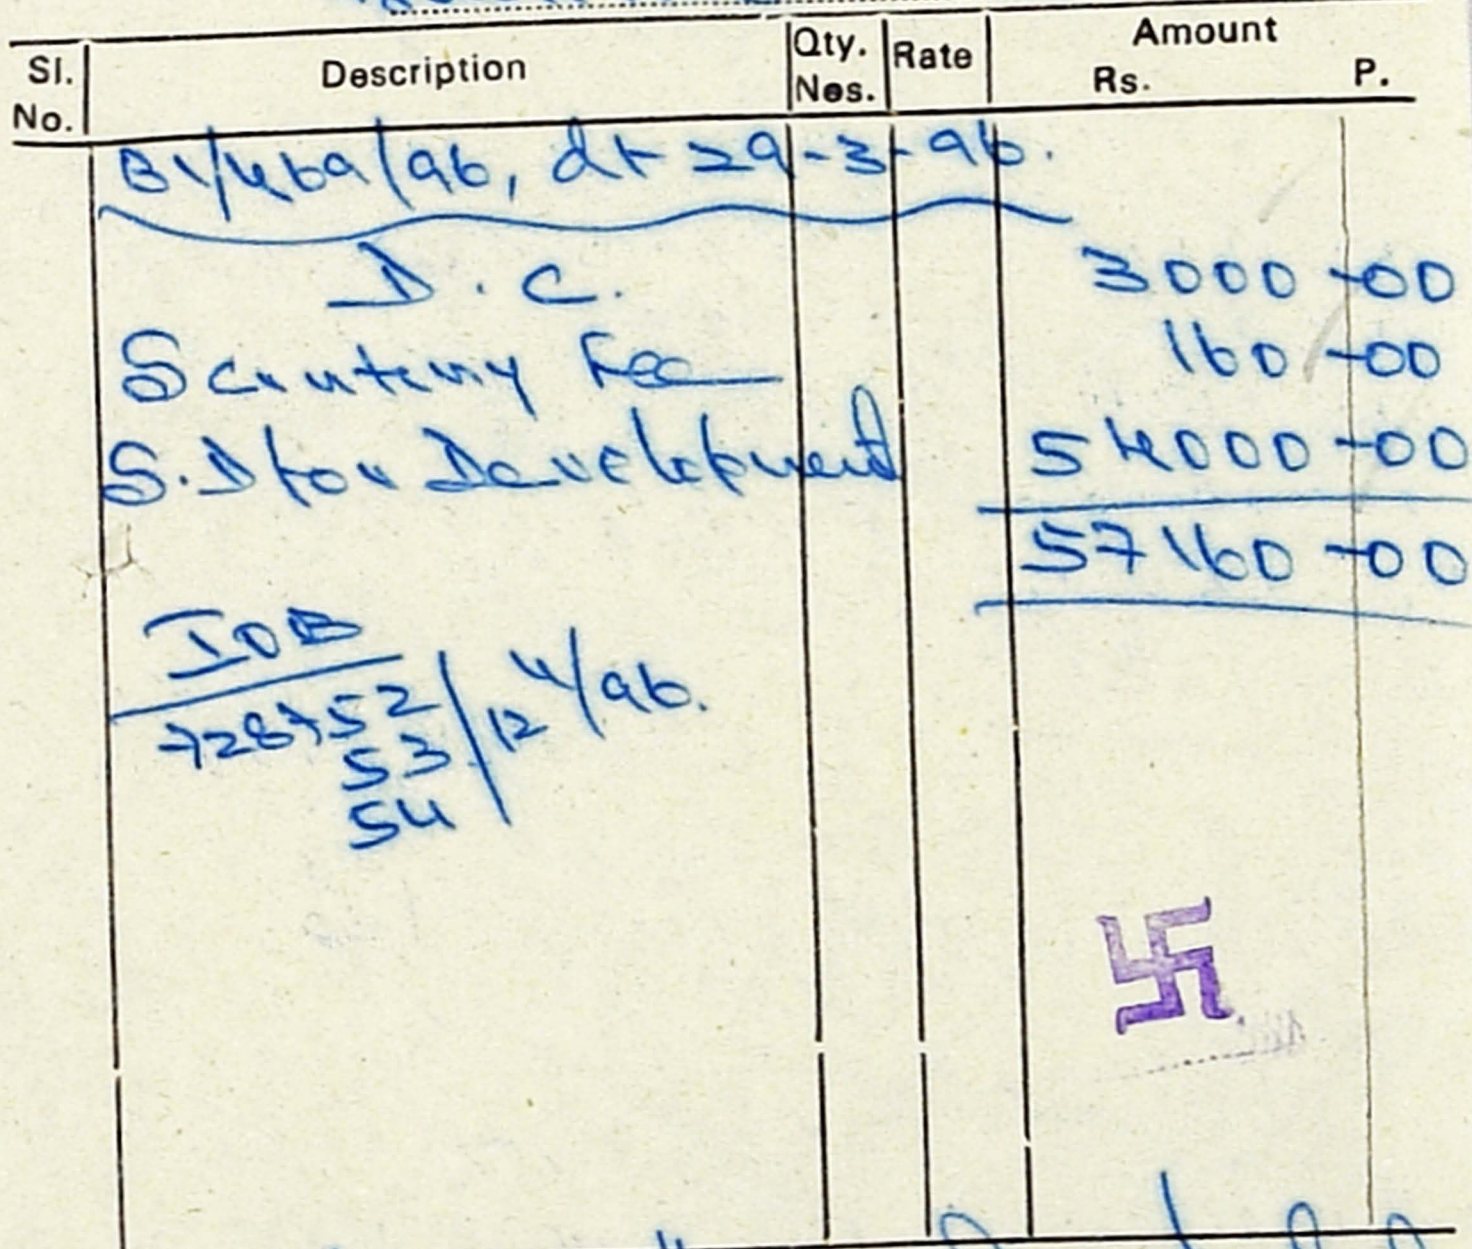 Sl. No. Description Qty. Nos. Rate Amount Rs. P.
B1/469/96, dt 29-3-96.
D.C. 3000-00
Scrutiny Fee 160-00
S.D for Development 54000-00
57160-00
IOB
728752 / 12/4/96.
53
54